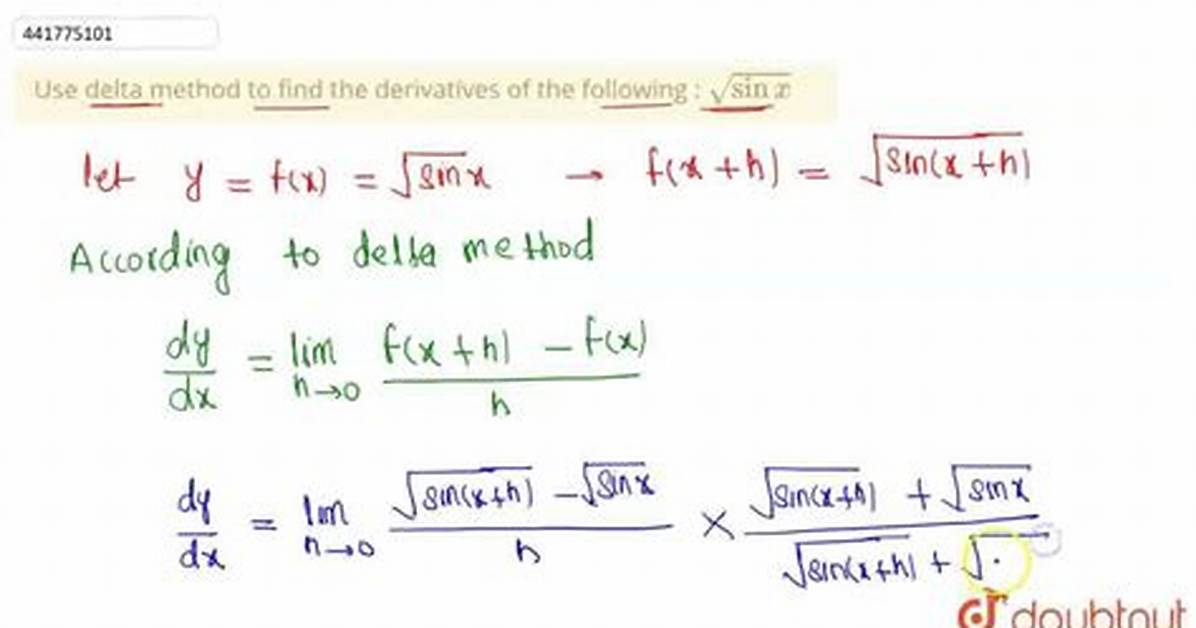 441775101
Use delta method to find the derivatives of the following : √sin x
let y = f(x) = √sinx → f(x+h) = √sin(x+h)
According to delta method
dy/dx = lim h→0 f(x+h) - f(x) / h
dy/dx = lim h→0 √sin(x+h) - √sinx / h × √sin(x+h) + √sinx / √sin(x+h) + √
doubtnut